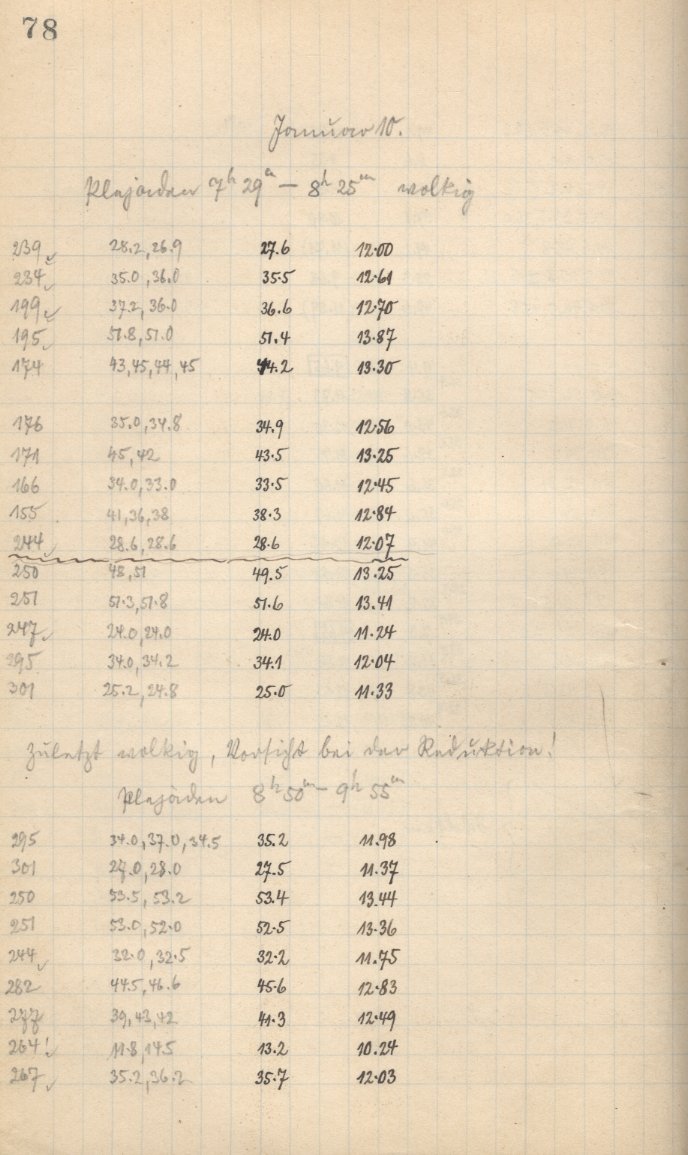 78
Januar 10.
Plejaden 7h 29m – 8h 25m wolkig
239 ✓ 28.2, 26.9 27.6 12.00
234 ✓ 35.0, 36.0 35.5 12.61
199 ✓ 37.2, 36.0 36.6 12.70
195 ✓ 51.8, 51.0 51.4 13.87
174 43, 45, 44, 45 44.2 13.30
176 35.0, 34.8 34.9 12.56
171 45, 42 43.5 13.25
166 34.0, 33.0 33.5 12.45
155 41, 36, 38 38.3 12.84
244 ✓ 28.6, 28.6 28.6 12.07
250 48, 51 49.5 13.25
251 51.3, 51.8 51.6 13.41
247 ✓ 24.0, 24.0 24.0 11.24
295 34.0, 34.2 34.1 12.04
301 25.2, 24.8 25.0 11.33
Zuletzt wolkig, Vorsicht bei der Reduktion!
Plejaden 8h 50m – 9h 55m
295 34.0, 37.0, 34.5 35.2 11.98
301 27.0, 28.0 27.5 11.37
250 53.5, 53.2 53.4 13.44
251 53.0, 52.0 52.5 13.36
244 ✓ 32.0, 32.5 32.2 11.75
282 44.5, 46.6 45.6 12.83
277 39, 43, 42 41.3 12.49
264! ✓ 11.8, 14.5 13.2 10.24
267 ✓ 35.2, 36.2 35.7 12.03